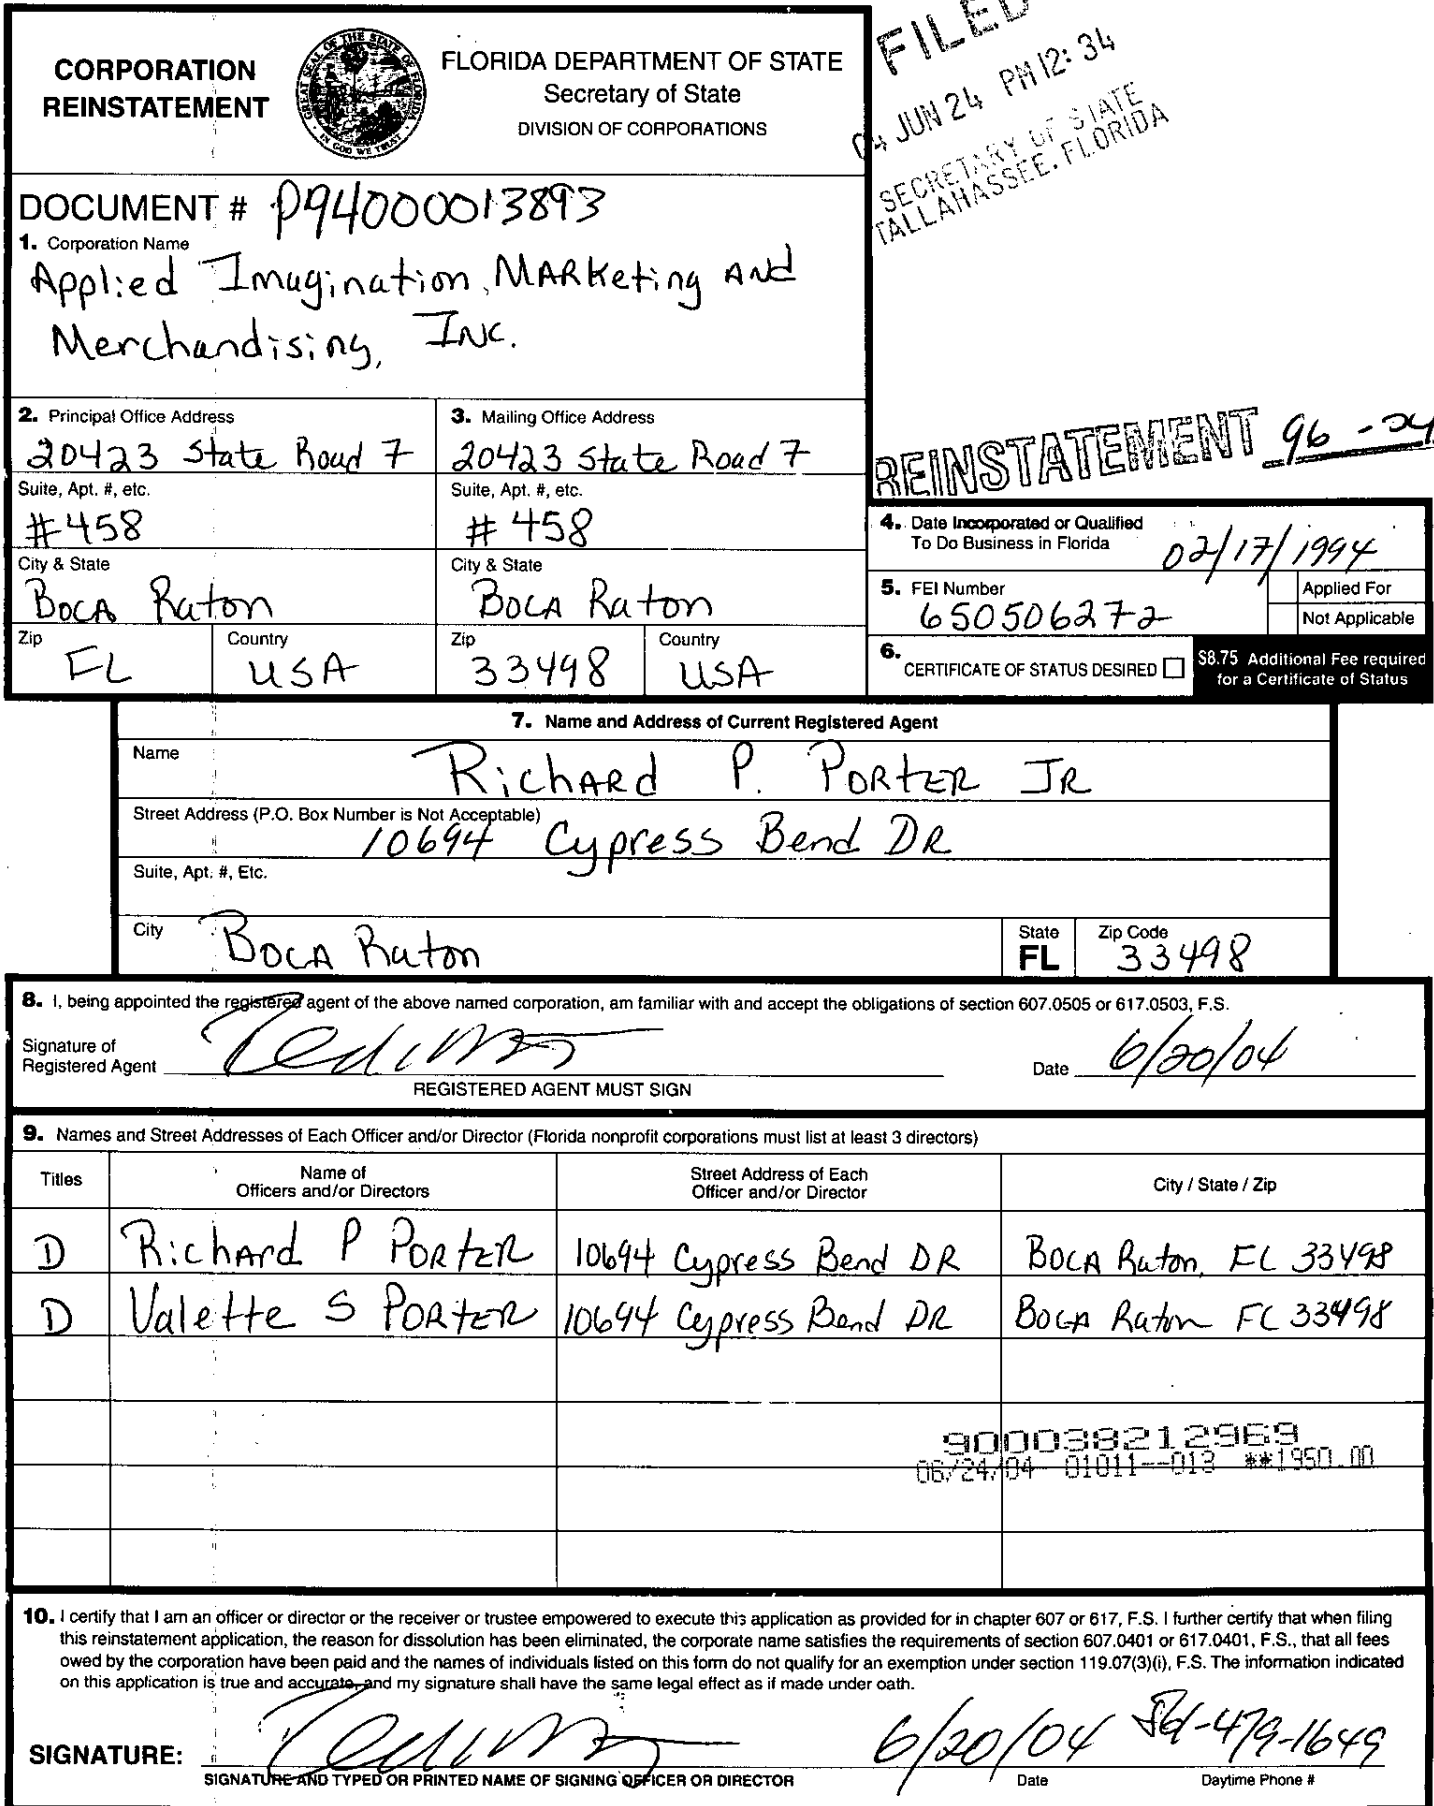 FILED
04 JUN 24 PM 12:34
SECRETARY OF STATE
TALLAHASSEE, FLORIDA
CORPORATION
REINSTATEMENT
GREAT SEAL OF THE STATE OF FLORIDA
IN GOD WE TRUST
FLORIDA DEPARTMENT OF STATE
Secretary of State
DIVISION OF CORPORATIONS
DOCUMENT # P94000013893
1. Corporation Name
Applied Imagination, MARKeting ANd
Merchandising, INC.
2. Principal Office Address
20423 State Road 7
Suite, Apt. #, etc.
#458
City & State
BOCA Raton
Zip
FL
Country
USA
3. Mailing Office Address
20423 State Road 7
Suite, Apt. #, etc.
#458
City & State
BOCA Raton
Zip
33498
Country
USA
REINSTATEMENT 96-04
4. Date Incorporated or Qualified
To Do Business in Florida
02/17/1994
5. FEI Number
650506272
Applied For
Not Applicable
6. CERTIFICATE OF STATUS DESIRED
$8.75 Additional Fee required
for a Certificate of Status
7. Name and Address of Current Registered Agent
Name
RichARd P. PORtER JR
Street Address (P.O. Box Number is Not Acceptable)
10694 Cypress Bend DR
Suite, Apt. #, Etc.
City
BOCA Raton
State
FL
Zip Code
33498
8. I, being appointed the registered agent of the above named corporation, am familiar with and accept the obligations of section 607.0505 or 617.0503, F.S.
Signature of
Registered Agent
REGISTERED AGENT MUST SIGN
Date 6/20/04
9. Names and Street Addresses of Each Officer and/or Director (Florida nonprofit corporations must list at least 3 directors)
Titles
Name of
Officers and/or Directors
Street Address of Each
Officer and/or Director
City / State / Zip
D Richard P PORtER 10694 Cypress Bend DR BOCA Raton, FL 33498
D Valette S PORtER 10694 Cypress Bend DR BOCA Raton FL 33498
900038212969
06/24/04 01011--013 **1950.00
10. I certify that I am an officer or director or the receiver or trustee empowered to execute this application as provided for in chapter 607 or 617, F.S. I further certify that when filing
this reinstatement application, the reason for dissolution has been eliminated, the corporate name satisfies the requirements of section 607.0401 or 617.0401, F.S., that all fees
owed by the corporation have been paid and the names of individuals listed on this form do not qualify for an exemption under section 119.07(3)(i), F.S. The information indicated
on this application is true and accurate, and my signature shall have the same legal effect as if made under oath.
SIGNATURE:
6/20/04
479-1649
SIGNATURE AND TYPED OR PRINTED NAME OF SIGNING OFFICER OR DIRECTOR
Date
Daytime Phone #